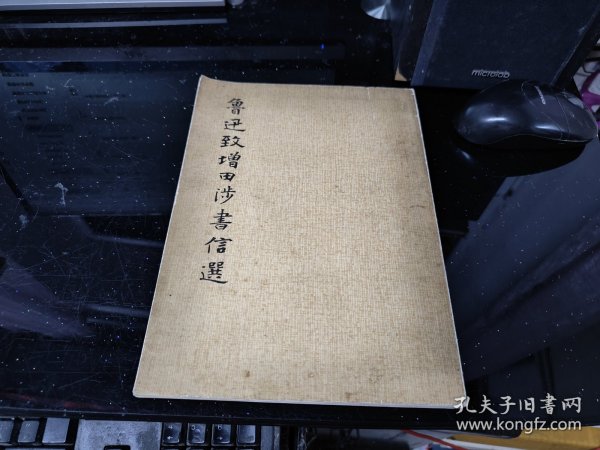 魯迅致增田涉書信選
microlab
孔夫子旧書网
www.kongfz.com